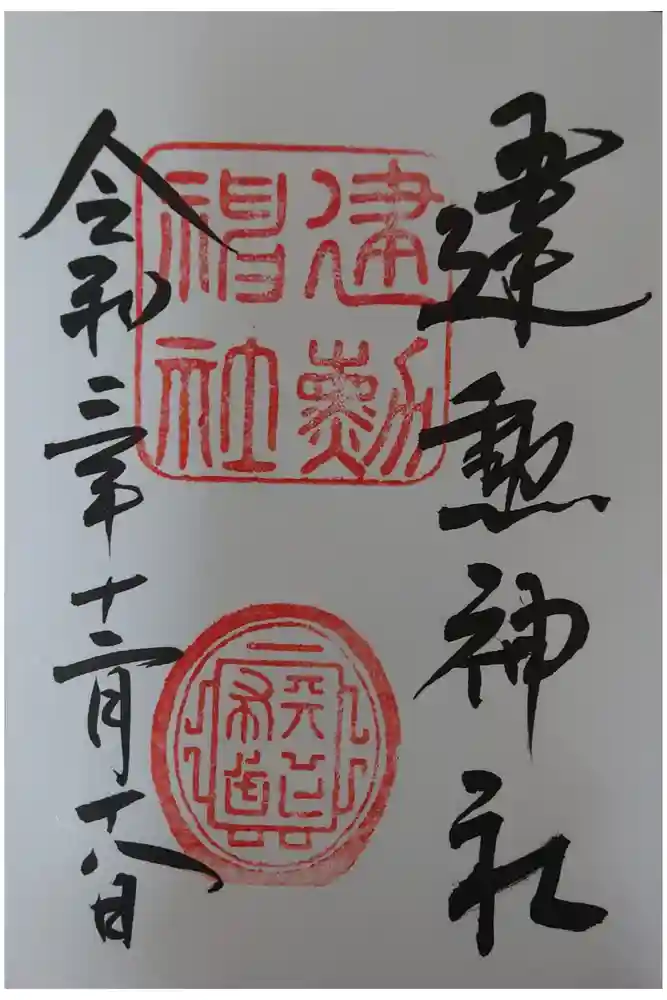 建勲神社
建勲
神社
天下布武
令和三年十二月十八日